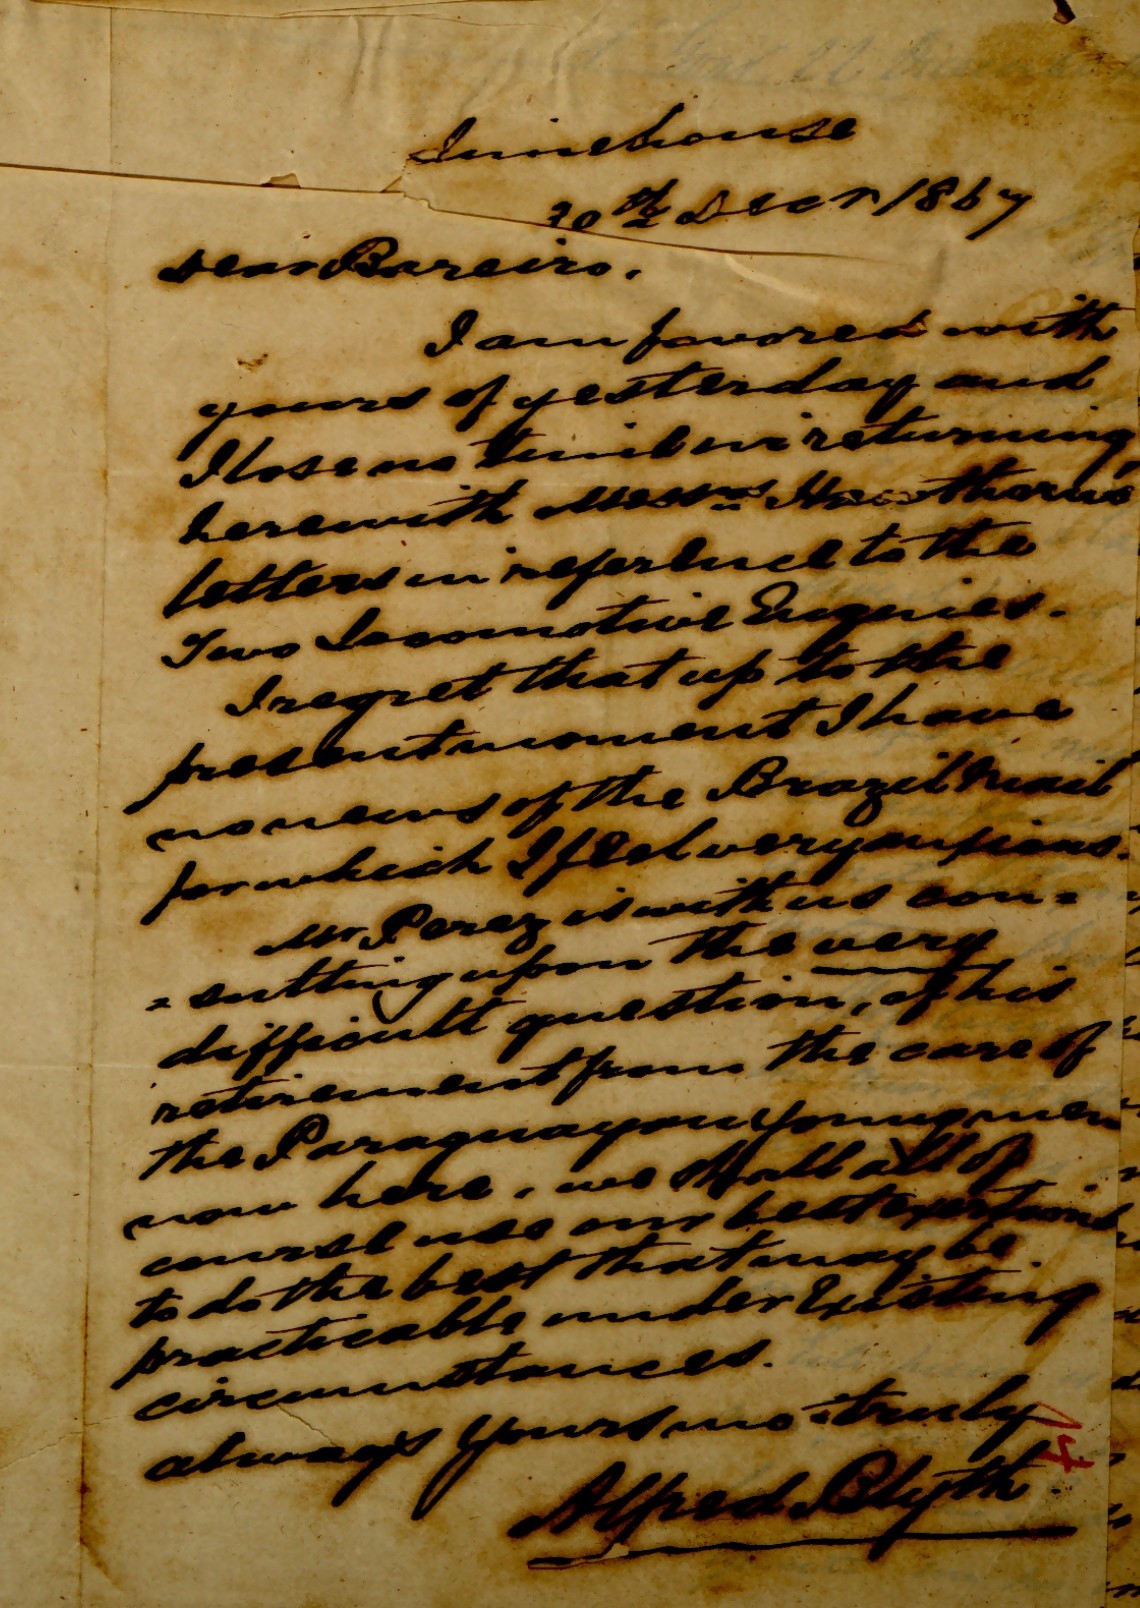 Limehouse
20th Decr 1867
Dear Bareiro,
I am favored with
yours of yesterday and
I lose no time in returning
herewith Messrs Hawthorns
letters in reference to the
Two Locomotive Engines.
I regret that up to the
present moment I have
no news of the Brazil Mail
for which I feel very anxious.
Mr Perez is with us con=
=sulting upon the very
difficult question, of his
retirement from the care of
the Paraguayan young men
now here, we shall all of
course use our best exertions
to do the best that may be
practicable under Existing
circumstances.
always yours mo: truly
Alfred Blyth